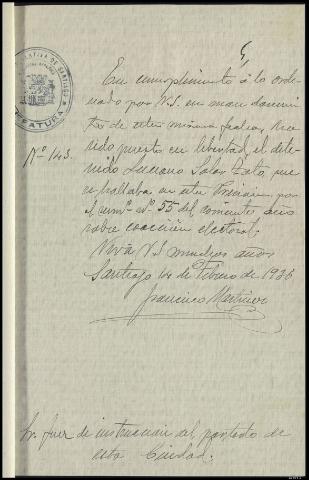 TIVA DE SANTIAGO
JEFATURA
En cumplimiento á lo orde-
nado por V.S. en mandamien-
to de esta misma fecha, he
sido puesto en libertad, el dete-
nido Luciano Salas Zato, que
se hallaba en esta Prision, por
Nº 143.
el sumº nº 55 del corriente año
sobre coacción electoral.
Viva V.S muchos años
Santiago 14 de Febrero de 1936
Francisco Martinez
Sr. Juez de instruccion del partido de
esta Ciudad.